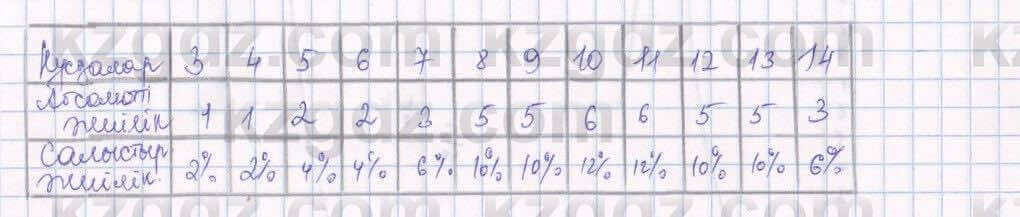 Нұсқалар 3 4 5 6 7 8 9 10 11 12 13 14
Абсолютті
жиілік 1 1 2 2 3 5 5 6 6 5 5 3
Салыстыр
жиілік. 2% 2% 4% 4% 6% 10% 10% 12% 12% 10% 10% 6%
kzgdz.com